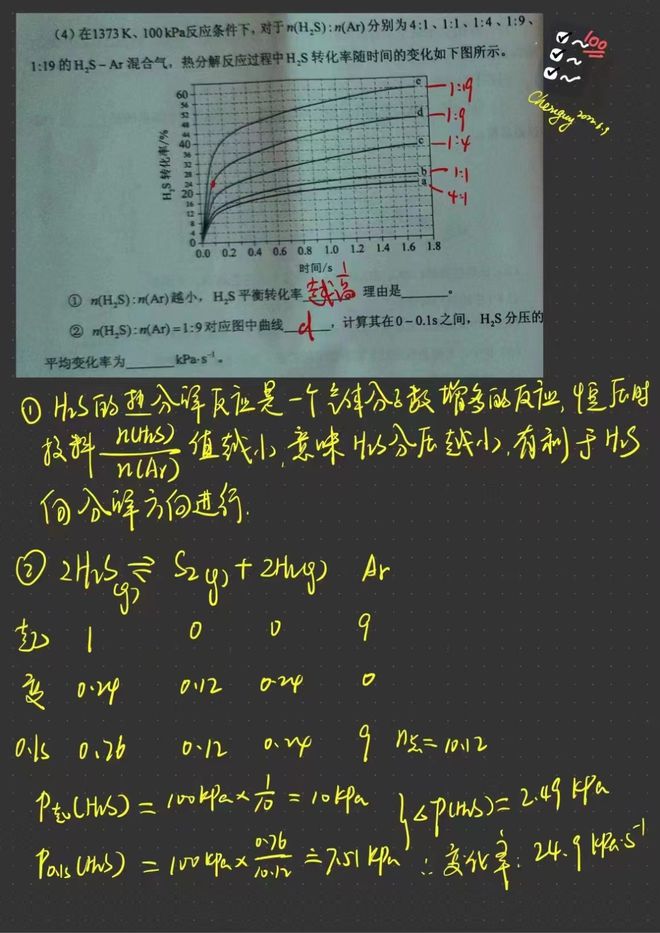 (4) 在1373 K、100 kPa反应条件下,对于n(H₂S):n(Ar)分别为4:1、1:1、1:4、1:9、
1:19的H₂S-Ar混合气,热分解反应过程中H₂S转化率随时间的变化如下图所示。
100
H₂S 转化率/%
60
56
52
48
44
40
36
32
28
24
20
16
12
8
4
0
e
d
c
b
a
1:19
1:9
1:4
1:1
4:1
0.0 0.2 0.4 0.6 0.8 1.0 1.2 1.4 1.6 1.8
时间/s
① n(H₂S):n(Ar)越小,H₂S平衡转化率 越高 理由是______。
② n(H₂S):n(Ar)=1:9对应图中曲线 d ,计算其在0~0.1s之间,H₂S分压的
平均变化率为______kPa·s⁻¹。
① H₂S的热分解反应是一个气体分子数增多的反应,恒压时
投料 n(H₂S)/n(Ar) 值越小,意味H₂S分压越小,有利于H₂S
向分解方向进行.
② 2H₂S(g) ⇌ S₂(g) + 2H₂(g) Ar
起 1 0 0 9
变 0.24 0.12 0.24 0
0.1s 0.76 0.12 0.24 9 n总=10.12
P起(H₂S) = 100kPa×1/10 = 10kPa
P0.1s(H₂S) = 100kPa×0.76/10.12 ≐ 7.51kPa
ΔP(H₂S) = 2.49 kPa
∴变化率: 24.9 kPa·s⁻¹